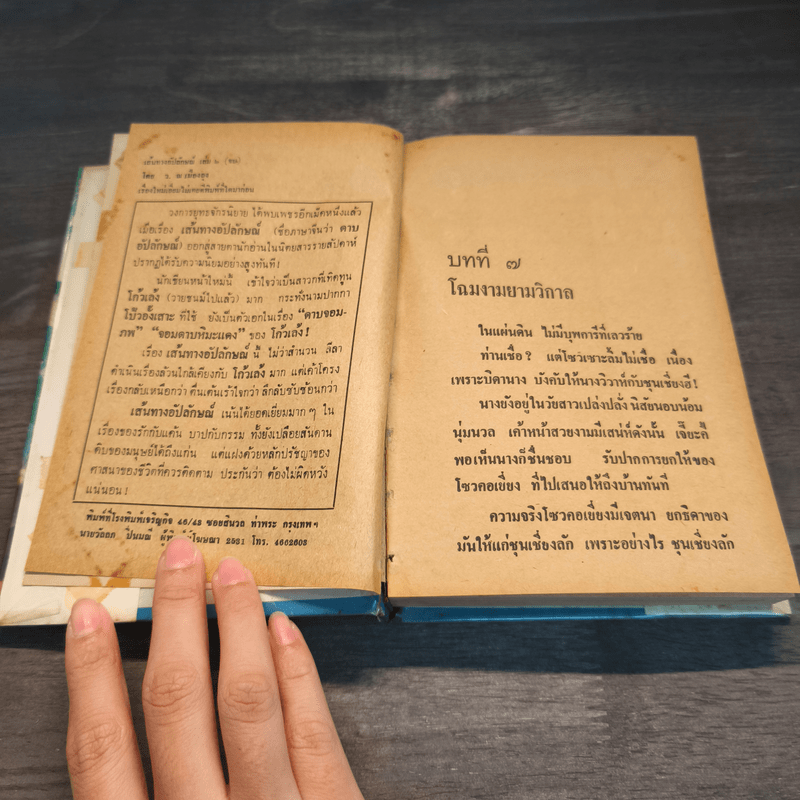 เส้นทางอัปลักษณ์ เล่ม ๒ (จบ)
โดย ว. ณ เมืองลุง
เรื่องใหม่เอี่ยมไม่เคยตีพิมพ์ที่ใดมาก่อน
วงการยุทธจักรนิยาย ได้พบเพชรอีกเม็ดหนึ่งแล้ว
เมื่อเรื่อง เส้นทางอัปลักษณ์ (ชื่อภาษาจีนว่า ดาบ
อัปลักษณ์) ออกสู่สายตานักอ่านในนิตยสารรายสัปดาห์
ปรากฏได้รับความนิยมอย่างสูงทันที!
นักเขียนหน้าใหม่นี้ เข้าใจว่าเป็นสาวกที่เทิดทูน
โก้วเล้ง (วายชนม์ไปแล้ว) มาก กระทั่งนามปากกา
โป้วอั้งเสาะ ที่ใช้ ยังเป็นตัวเอกในเรื่อง "ดาบจอม-
ภพ" "จอมดาบหิมะแดง" ของ โก้วเล้ง!
เรื่อง เส้นทางอัปลักษณ์ นี้ ไม่ว่าสำนวน ลีลา
ดำเนินเรื่องล้วนใกล้เคียงกับ โก้วเล้ง มาก แต่เค้าโครง
เรื่องกลับเหนือกว่า ตื่นเต้นเร้าใจกว่า ลึกลับซับซ้อนกว่า
เส้นทางอัปลักษณ์ เน้นได้ยอดเยี่ยมมาก ๆ ใน
เรื่องของรักกับแค้น บาปกับกรรม ทั้งยังเปลือยสันดาน
ดิบของมนุษย์ได้ถึงแก่น แต่แฝงด้วยหลักปรัชญาของ
ศาสนาของชีวิตที่ควรติดตาม ประกันว่า ต้องไม่ผิดหวัง
แน่นอน!
พิมพ์ที่โรงพิมพ์เจริญกิจ 46/43 ซอยสีนวล ท่าพระ กรุงเทพฯ
นายวัลลภ ปิ่นมณี ผู้พิมพ์ผู้โฆษณา 2531 โทร. 4662603
บทที่ ๗
โฉมงามยามวิกาล
ในแผ่นดิน ไม่มีบุพการีที่เลวร้าย
ท่านเชื่อ? แต่โซวเซาะลิ้มไม่เชื่อ เนื่อง
เพราะบิดานาง บังคับให้นางวิวาห์กับชุนเชี่ยงฮี!
นางยังอยู่ในวัยสาวเปล่งปลั่ง นิสัยนอบน้อม
นุ่มนวล เค้าหน้าสวยงามมีเสน่ห์ดังนั้น เจี๊ยะคี้
พอเห็นนางก็ชื่นชอบ รับปากการยกให้ของ
โซวคอเชี่ยง ที่ไปเสนอให้ถึงบ้านทันที
ความจริงโซวคอเชี่ยงมีเจตนา ยกธิดาของ
มันให้แก่ชุนเชี่ยงลัก เพราะอย่างไร ชุนเชี่ยงลัก